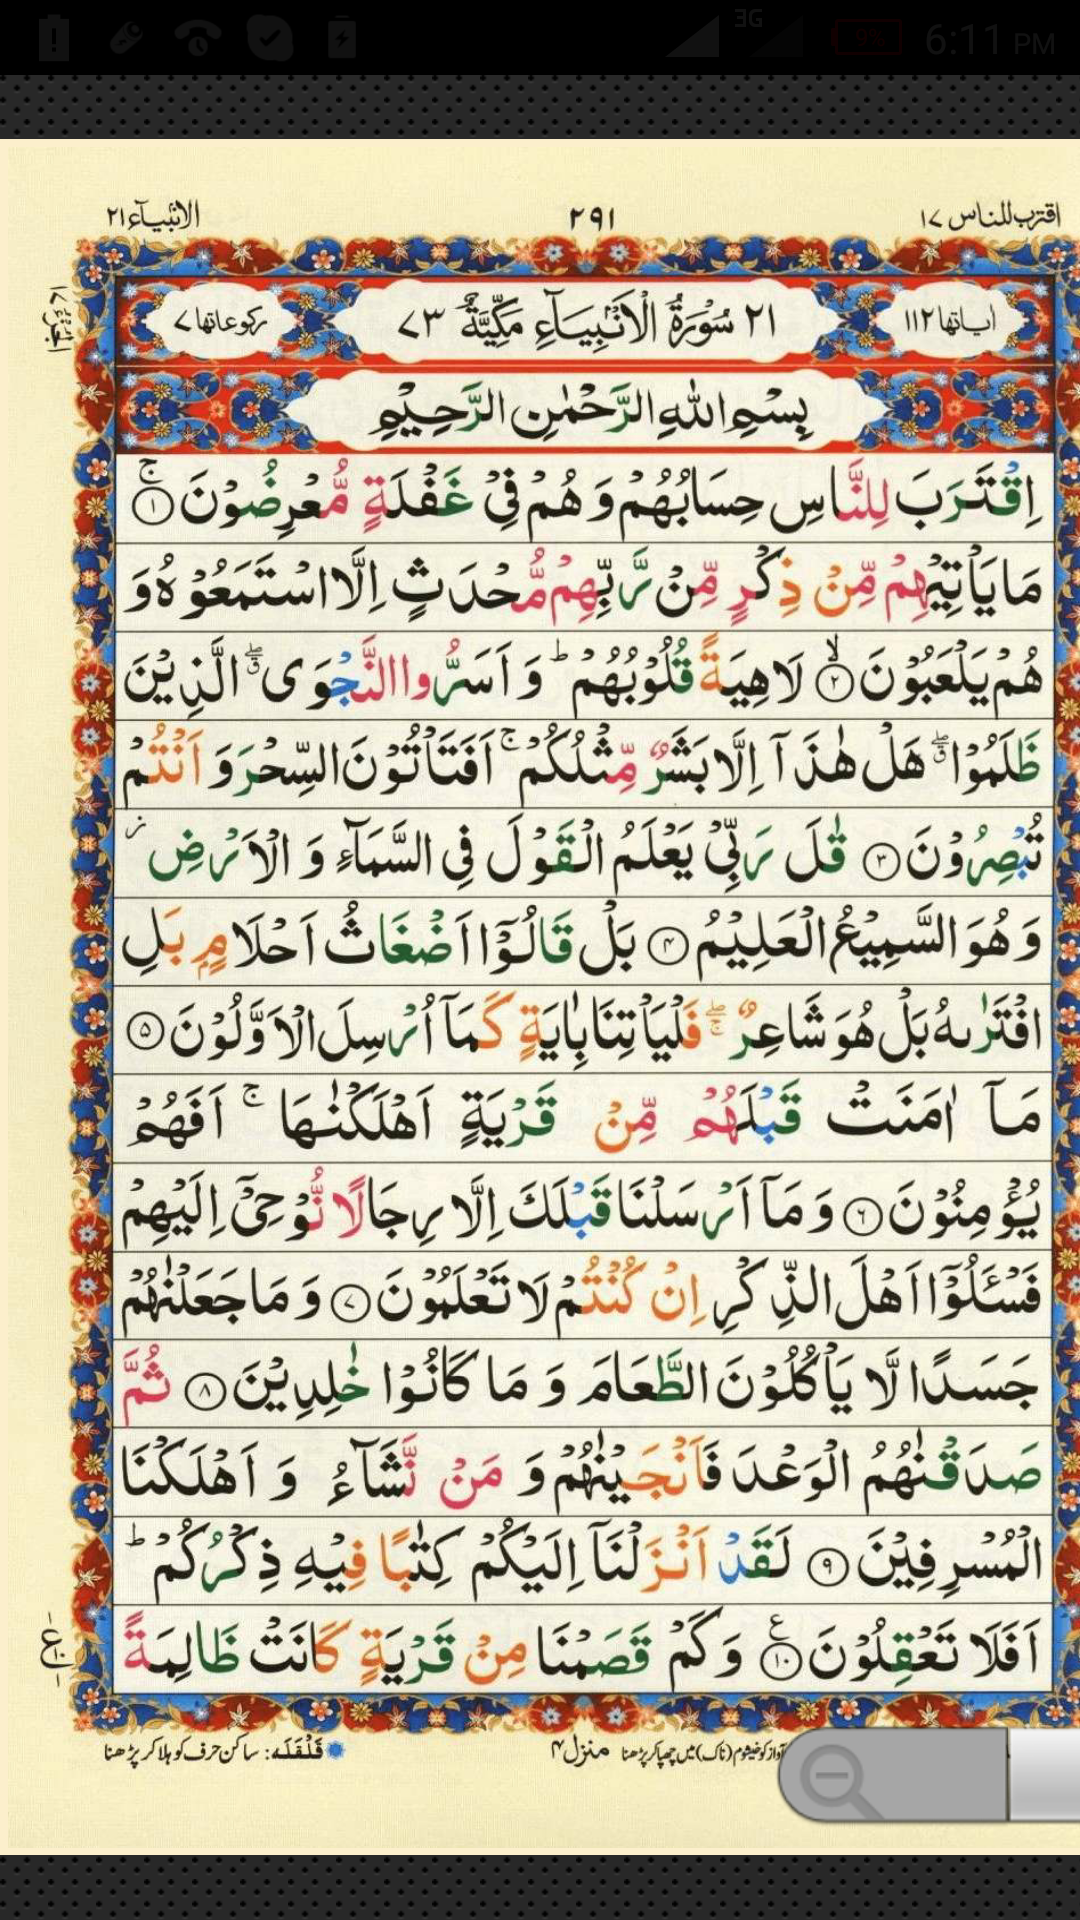 3G 9% 6:11 PM
اقترب للناس ١٧ ٢٩١ الانبیآء ٢١
اٰیاتها ١١٢ ٢١ سُوْرَةُ الْاَنْۢبِیَآءِ مَكِّیَّةٌ ٧٣ رکوعاتها ٧
بِسْمِ اللّٰهِ الرَّحْمٰنِ الرَّحِیْمِ
اِقْتَرَبَ لِلنَّاسِ حِسَابُهُمْ وَ هُمْ فِیْ غَفْلَةٍ مُّعْرِضُوْنَ ۚ ﴿١﴾
مَا یَاْتِیْهِمْ مِّنْ ذِكْرٍ مِّنْ رَّبِّهِمْ مُّحْدَثٍ اِلَّا اسْتَمَعُوْهُ وَ
هُمْ یَلْعَبُوْنَ ۙ ﴿٢﴾ لَاهِیَةً قُلُوْبُهُمْ ؕ وَ اَسَرُّوا النَّجْوَی ۖق الَّذِیْنَ
ظَلَمُوْا ۖق هَلْ هٰذَاۤ اِلَّا بَشَرٌ مِّثْلُكُمْ ۚ اَفَتَاْتُوْنَ السِّحْرَ وَ اَنْتُمْ
تُبْصِرُوْنَ ﴿٣﴾ قٰلَ رَبِّیْ یَعْلَمُ الْقَوْلَ فِی السَّمَآءِ وَ الْاَرْضِ ؗ
وَ هُوَ السَّمِیْعُ الْعَلِیْمُ ﴿٤﴾ بَلْ قَالُوْۤا اَضْغَاثُ اَحْلَامٍۭ بَلِ
افْتَرٰىهُ بَلْ هُوَ شَاعِرٌ ۖۚ فَلْیَاْتِنَا بِاٰیَةٍ كَمَاۤ اُرْسِلَ الْاَوَّلُوْنَ ﴿٥﴾
مَاۤ اٰمَنَتْ قَبْلَهُمْ مِّنْ قَرْیَةٍ اَهْلَكْنٰهَا ۚ اَفَهُمْ
یُؤْمِنُوْنَ ﴿٦﴾ وَ مَاۤ اَرْسَلْنَا قَبْلَكَ اِلَّا رِجَالًا نُّوْحِیْۤ اِلَیْهِمْ
فَسْـَٔلُوْۤا اَهْلَ الذِّكْرِ اِنْ كُنْتُمْ لَا تَعْلَمُوْنَ ﴿٧﴾ وَ مَا جَعَلْنٰهُمْ
جَسَدًا لَّا یَاْكُلُوْنَ الطَّعَامَ وَ مَا كَانُوْا خٰلِدِیْنَ ﴿٨﴾ ثُمَّ
صَدَقْنٰهُمُ الْوَعْدَ فَاَنْجَیْنٰهُمْ وَ مَنْ نَّشَآءُ وَ اَهْلَكْنَا
الْمُسْرِفِیْنَ ﴿٩﴾ لَقَدْ اَنْزَلْنَاۤ اِلَیْكُمْ كِتٰبًا فِیْهِ ذِكْرُكُمْ ؕ
اَفَلَا تَعْقِلُوْنَ ﴿١٠﴾ ع وَ كَمْ قَصَمْنَا مِنْ قَرْیَةٍ كَانَتْ ظَالِمَةً
آواز کو خیشوم (ناک) میں چھپا کر پڑھنا منزل ٤ قَلْقَلَه: ساکن حرف کو ہلا کر پڑھنا